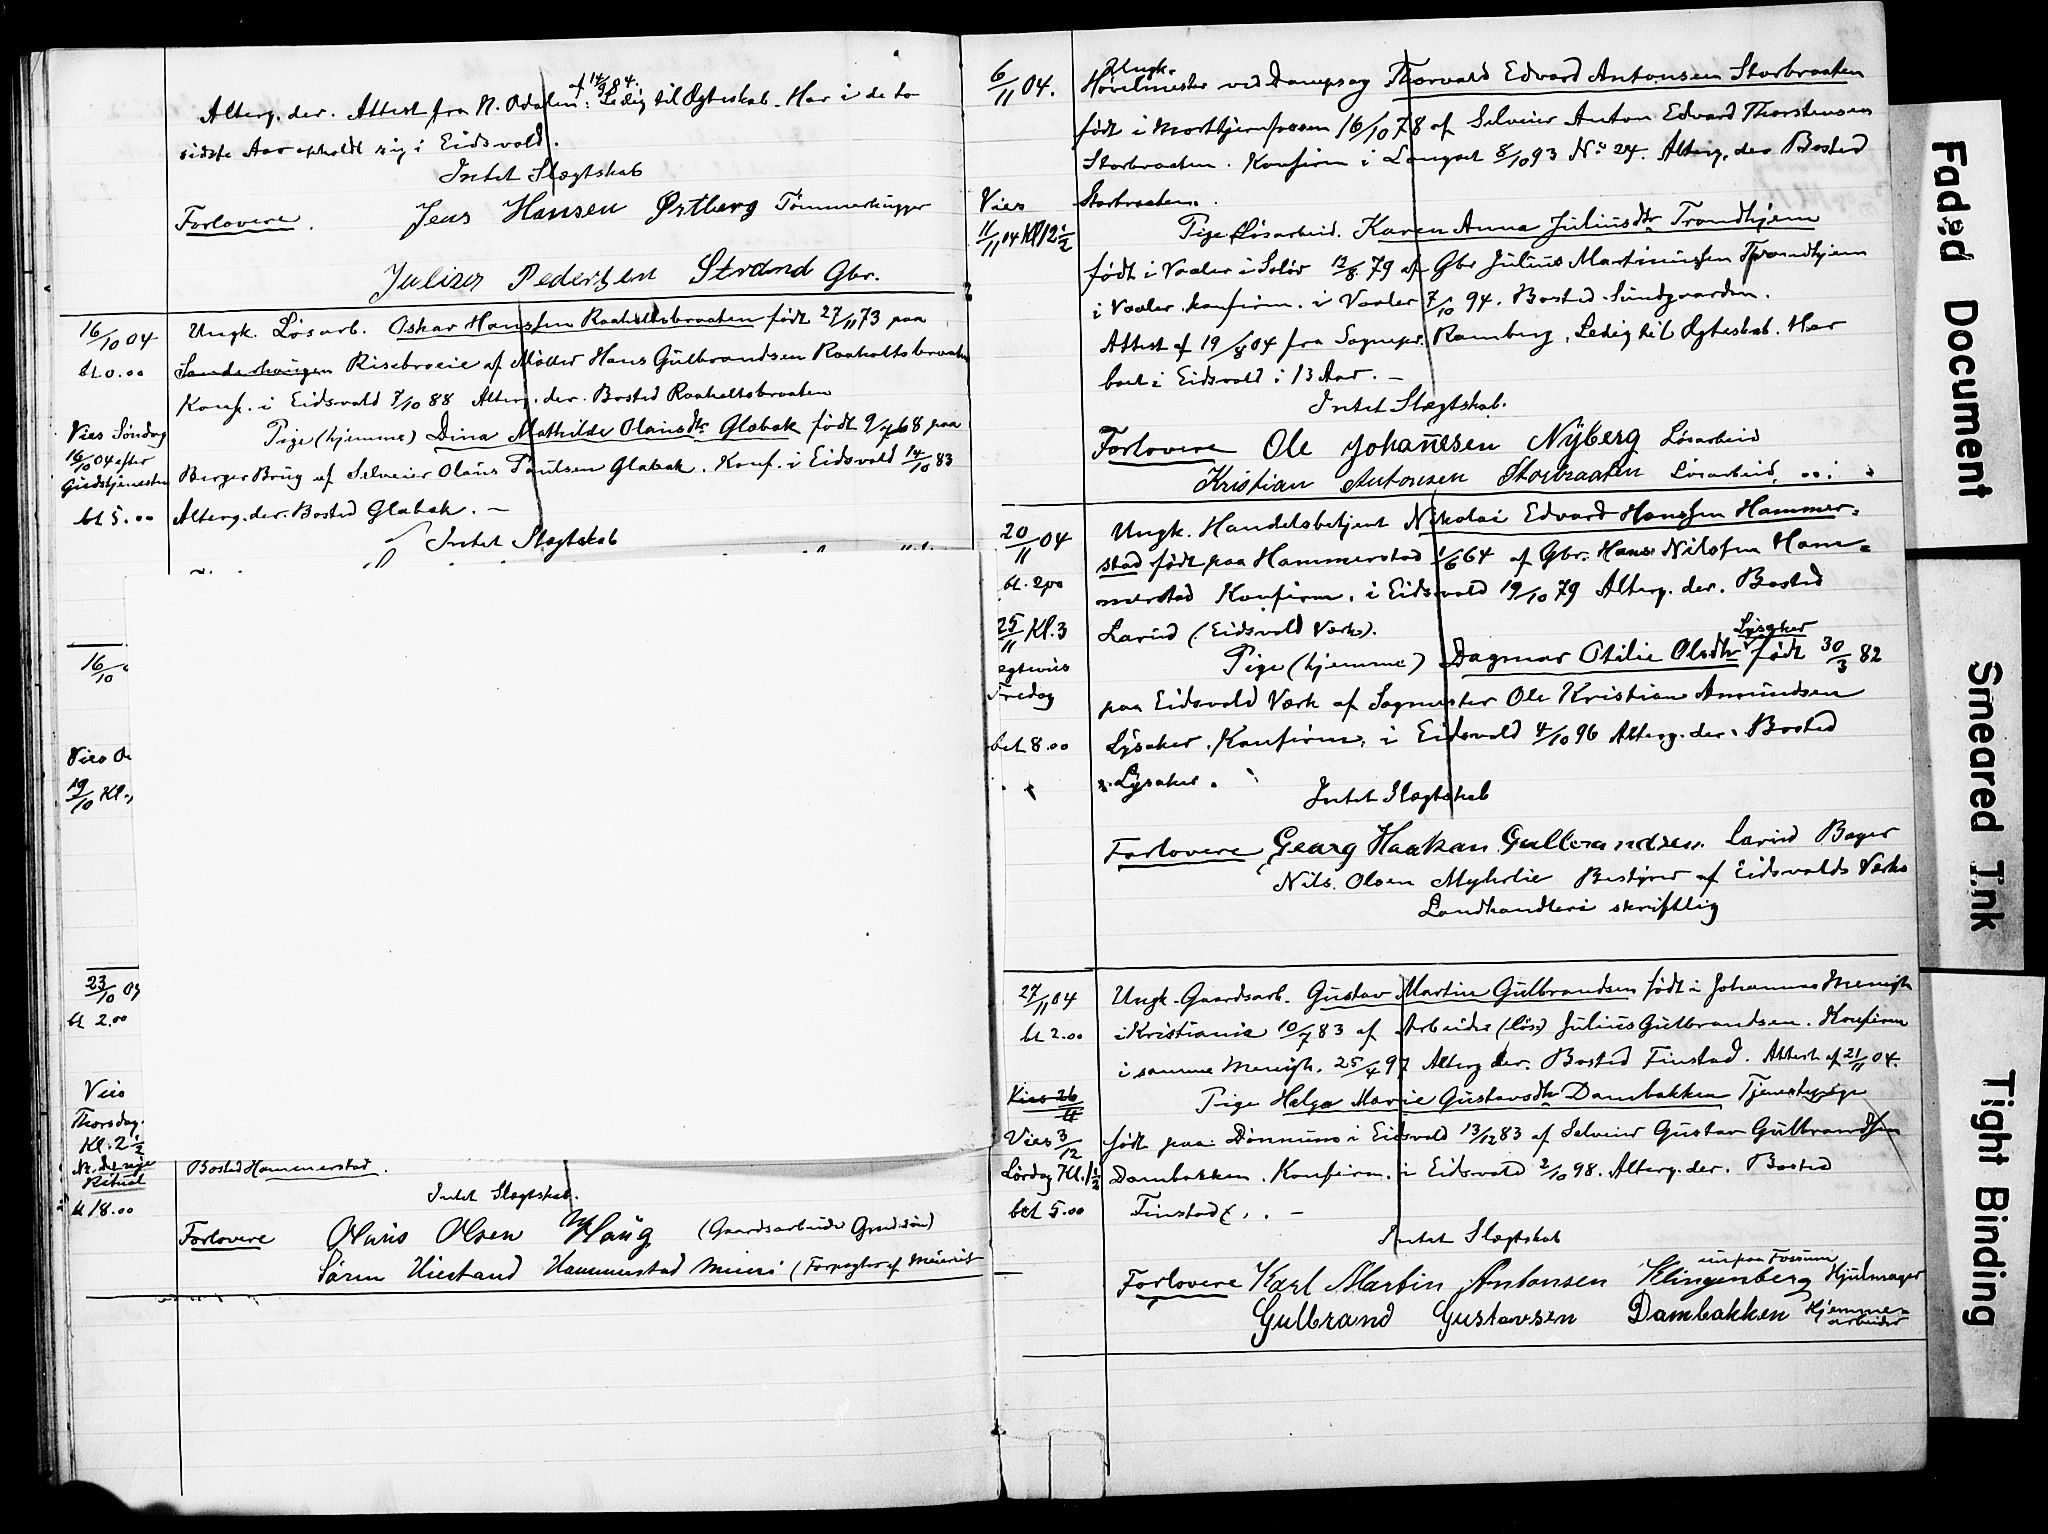 af 14/9 84.
Alterg. der. Attest fra N. Odalen: Ledig til Ægteskab. Har i de to
sidste Aar opholdt sig i Eidsvold.
Intet Slægtskab
Forlovere. Jens Hansen Østberg Tømmerhugger
Julius Pedersen Strand Gbr.
16/10 04
bt 0.00
Vies Søndag
16/10 04 efter
Gudstjenesten
bt 5.00
Ungk. Løsarb. Oskar Hanssen Raaholtsbraaten født 27/11 73 paa
Sanderhaugen Risebroeie af Møller Hans Gulbrandsen Raaholtsbraaten
Konf. i Eidsvold 7/10 88 Alterg. der. Bosted Raaholtsbraaten
Pige (hjemme) Dina Mathilde Olausdtr Glabak født 9/7 68 paa
Berger Brug af Selveier Olaus Paulsen Glabak. Konf. i Eidsvold 14/10 83
Alterg. der. Bosted Glabak. —
Intet Slægtskab
16/10
Vies
19/10 Kl.
23/10 04
bt 2.00
Vies
Thorsdag.
Kl. 2 1/2
Rituel
bt 18.00
Bosted Hammerstad.
Intet Slægtskab.
Forlovere Olaus Olsen Haug (Gaardsarbeider
Søren Hiestand Hammerstad Meieri (Forpagter af Meieriet
6/11 04.
Vies
11/11 04 Kl 12 1/2
Ungk.
Høvelmester ved Dampsag Thorvald Edvard Antonsen Storbraaten
født i Morttjernfossen 16/10 78 af Selveier Anton Edvard Thorstensen
Storbraaten. Konfirm i Langset 8/10 93 No 24. Alterg. der Bosted
Storbraaten.
Pige Løsarbeid. Karen Anna Juliusdtr Trondhjem
født i Vaaler i Solør 12/8 79 af Gbr Julius Martinussen Trondhjem
i Vaaler. Konfirm. i Vaaler 7/10 94. Bosted Sundgaarden.
Attest af 19/8 04 fra Sognepr. Ramberg. Ledig til Ægteskab. Har
boet i Eidsvold i 13 Aar. —
Intet Slægtskab.
Forlovere Ole Johannesen Nyberg Løsarbeid
Kristian Antonsen Storbraaten Løsarbeid.
20/11 04
bt. 2.00
25/11 Kl. 3
egtevies
Fredag
bet 8.00
Ungk. Handelsbetjent Nikolai Edvard Hanssen Hammer-
stad født paa Hammerstad 1/6 64 af Gbr. Hans Nilssen Ham-
merstad Konfirm. i Eidsvold 19/10 79 Alterg. der. Bosted
Larud (Eidsvold Værk).
Pige (hjemme) Dagmar Otilie Olsdtr Lysaker født 30/3 82
paa Eidsvold Værk af Sagmester Ole Kristian Amundsen
Lysaker. Konfirm. i Eidsvold 4/10 96 Alterg. der. Bosted
Lysaker.
Intet Slægtskab
Forlovere Georg Haakan Gulbrandsen. Larud Bager
Nils Olsen Myhrlie Bestyrer af Eidsvolds Værks
Landhandleri skriftlig
27/11 04
bt 2.00
Vies 26/11
Vies 3/12
Lørdag Kl. 1 1/2
bet 5.00
Ungk. Gaardsarb. Gustav Martin Gulbrandsen født i Johannes Menigh
i Kristiania 10/7 83 af Arbeider (Løs.) Julius Gulbrandsen. Konfirm
i samme Menigh. 25/4 97 Alterg der. Bosted Finstad. Attest af 21/11 04.
Pige Helga Marie Gustavsdtr Dambakken Tjenestepige
født paa Dønnum i Eidsvold 13/12 83 af Selveier Gustav Gulbrandsen
Dambakken. Konfirm. i Eidsvold 2/10 98. Alterg. der. Bosted
Finstad. —
Intet Slægtskab
Forlovere Karl Martin Antonsen Klingenberg Hjulmager
Gulbrand Gustavsen Dambakken Hjemme-
arbeider
Faded Document
Smeared Ink
Tight Binding